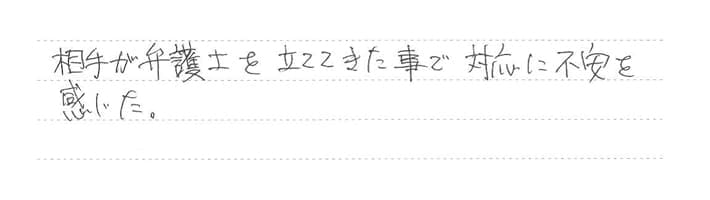 相手が弁護士を立ててきた事で対応に不安を
感じた。